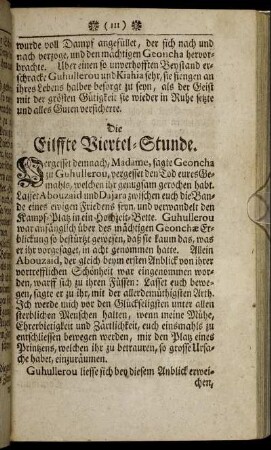 ( 111 )
wurde voll Dampf angefüllet, der sich nach und
nach verzoge, und den mächtigen Geoncha hervor-
brachte. Uber einen so unverhofften Beystand er-
schrack Guhullerou und Krahia sehr, sie fiengen an
ihres Lebens halber besorgt zu seyn, als der Geist
mit der grösten Gütigkeit sie wieder in Ruhe setzte
und alles Guten versicherte.
Die
Eilffte Viertel-Stunde.
Vergesset demnach, Madame, sagte Geoncha
zu Guhullerou, vergesset den Tod eures Ge-
mahls, welchen ihr genugsam gerochen habt.
Lasset Abouzaid und Dajara zwischen euch die Ban-
de eines ewigen Friedens seyn, und verwandelt den
Kampf-Platz in ein Hochzeit-Bette. Guhullerou
war anfänglich über des mächtigen Geonchæ Er-
blickung so bestürzt gewesen, daß sie kaum das, was
er ihr vorgesaget, in acht genommen hatte. Allein
Abouzaid, der gleich beym ersten Anblick von ihrer
vortrefflichen Schönheit war eingenommen wor-
den, warff sich zu ihren Füssen: Lasset euch bewe-
gen, sagte er zu ihr, mit der allerdemüthigsten Art,
Ich werde mich vor den Glückseeligsten unter allen
sterblichen Menschen halten, wenn meine Mühe,
Ehrerbietigkeit und Zärtlichkeit, euch einsmahls zu
entschliessen bewegen werden, mir den Platz eines
Printzens, welchen ihr zu betrauren, so grosse Ursa-
che habet, einzuräumen.
Guhullerou liesse sich bey diesem Anblick erwei-
chen,